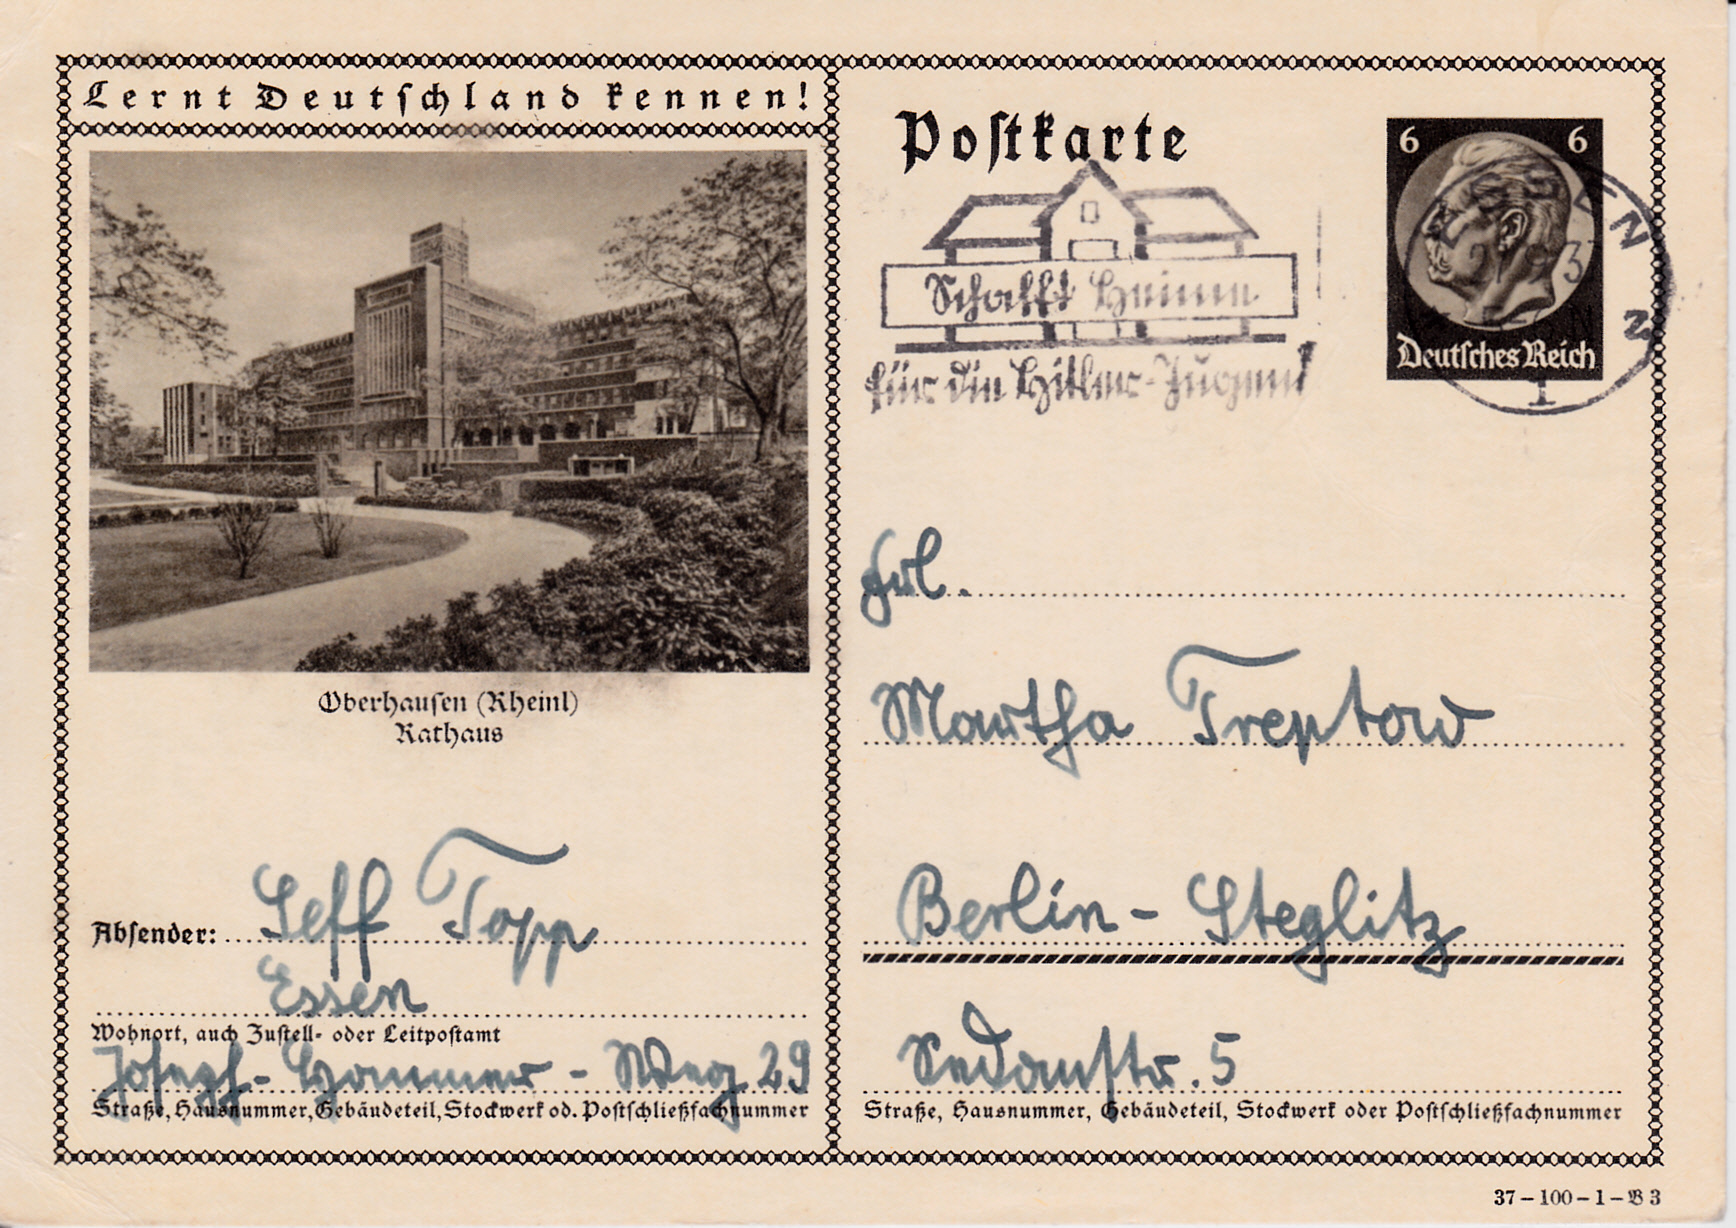 Lernt Deutschland kennen!
Oberhausen (Rheinl)
Rathaus
Absender: Seff Topp
Essen
Wohnort, auch Zustell- oder Leitpostamt
Josef-Hommer-Weg 29
Straße, Hausnummer, Gebäudeteil, Stockwerk od. Postschließfachnummer
Postkarte
6 6
Deutsches Reich
Schafft Heime
für die Hitler-Jugend
Frl.
Martha Treptow
Berlin-Steglitz
Sedanstr. 5
Straße, Hausnummer, Gebäudeteil, Stockwerk oder Postschließfachnummer
37-100-1-B 3